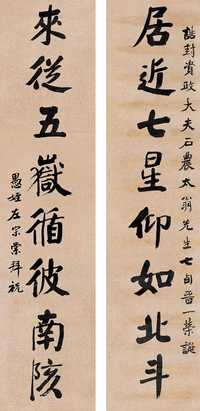 誥封資政大夫石農太翁先生七旬晉一榮誕
居近七星仰如北斗
來從五嶽循彼南陔
愚姪左宗棠拜祝